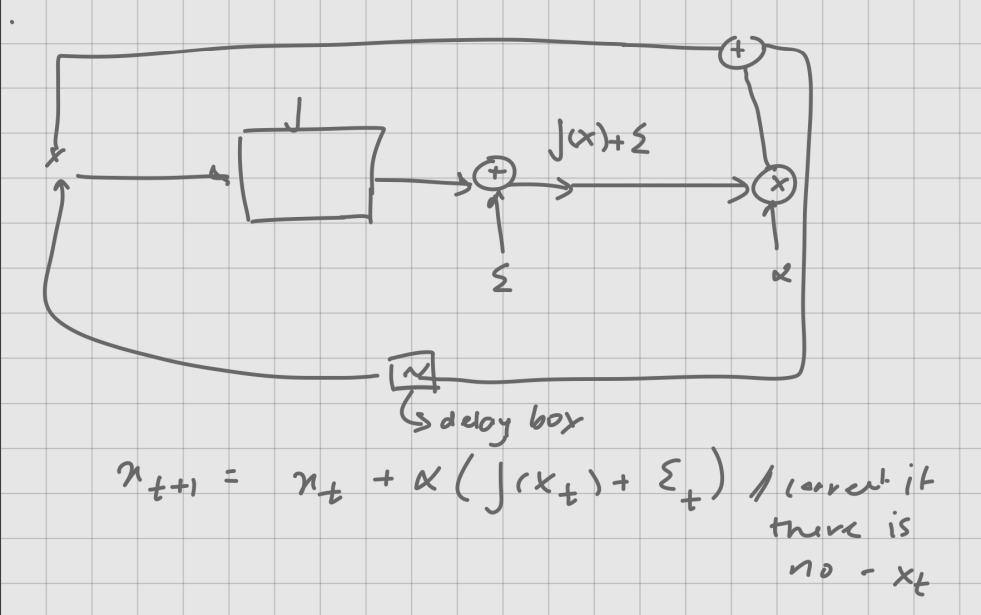 +
∫(x) + Σ
x
+
x
Σ
α
~
delay box
x_{t+1} = x_t + α(∫(x_t) + Σ_t) / correct it
there is
no - x_t